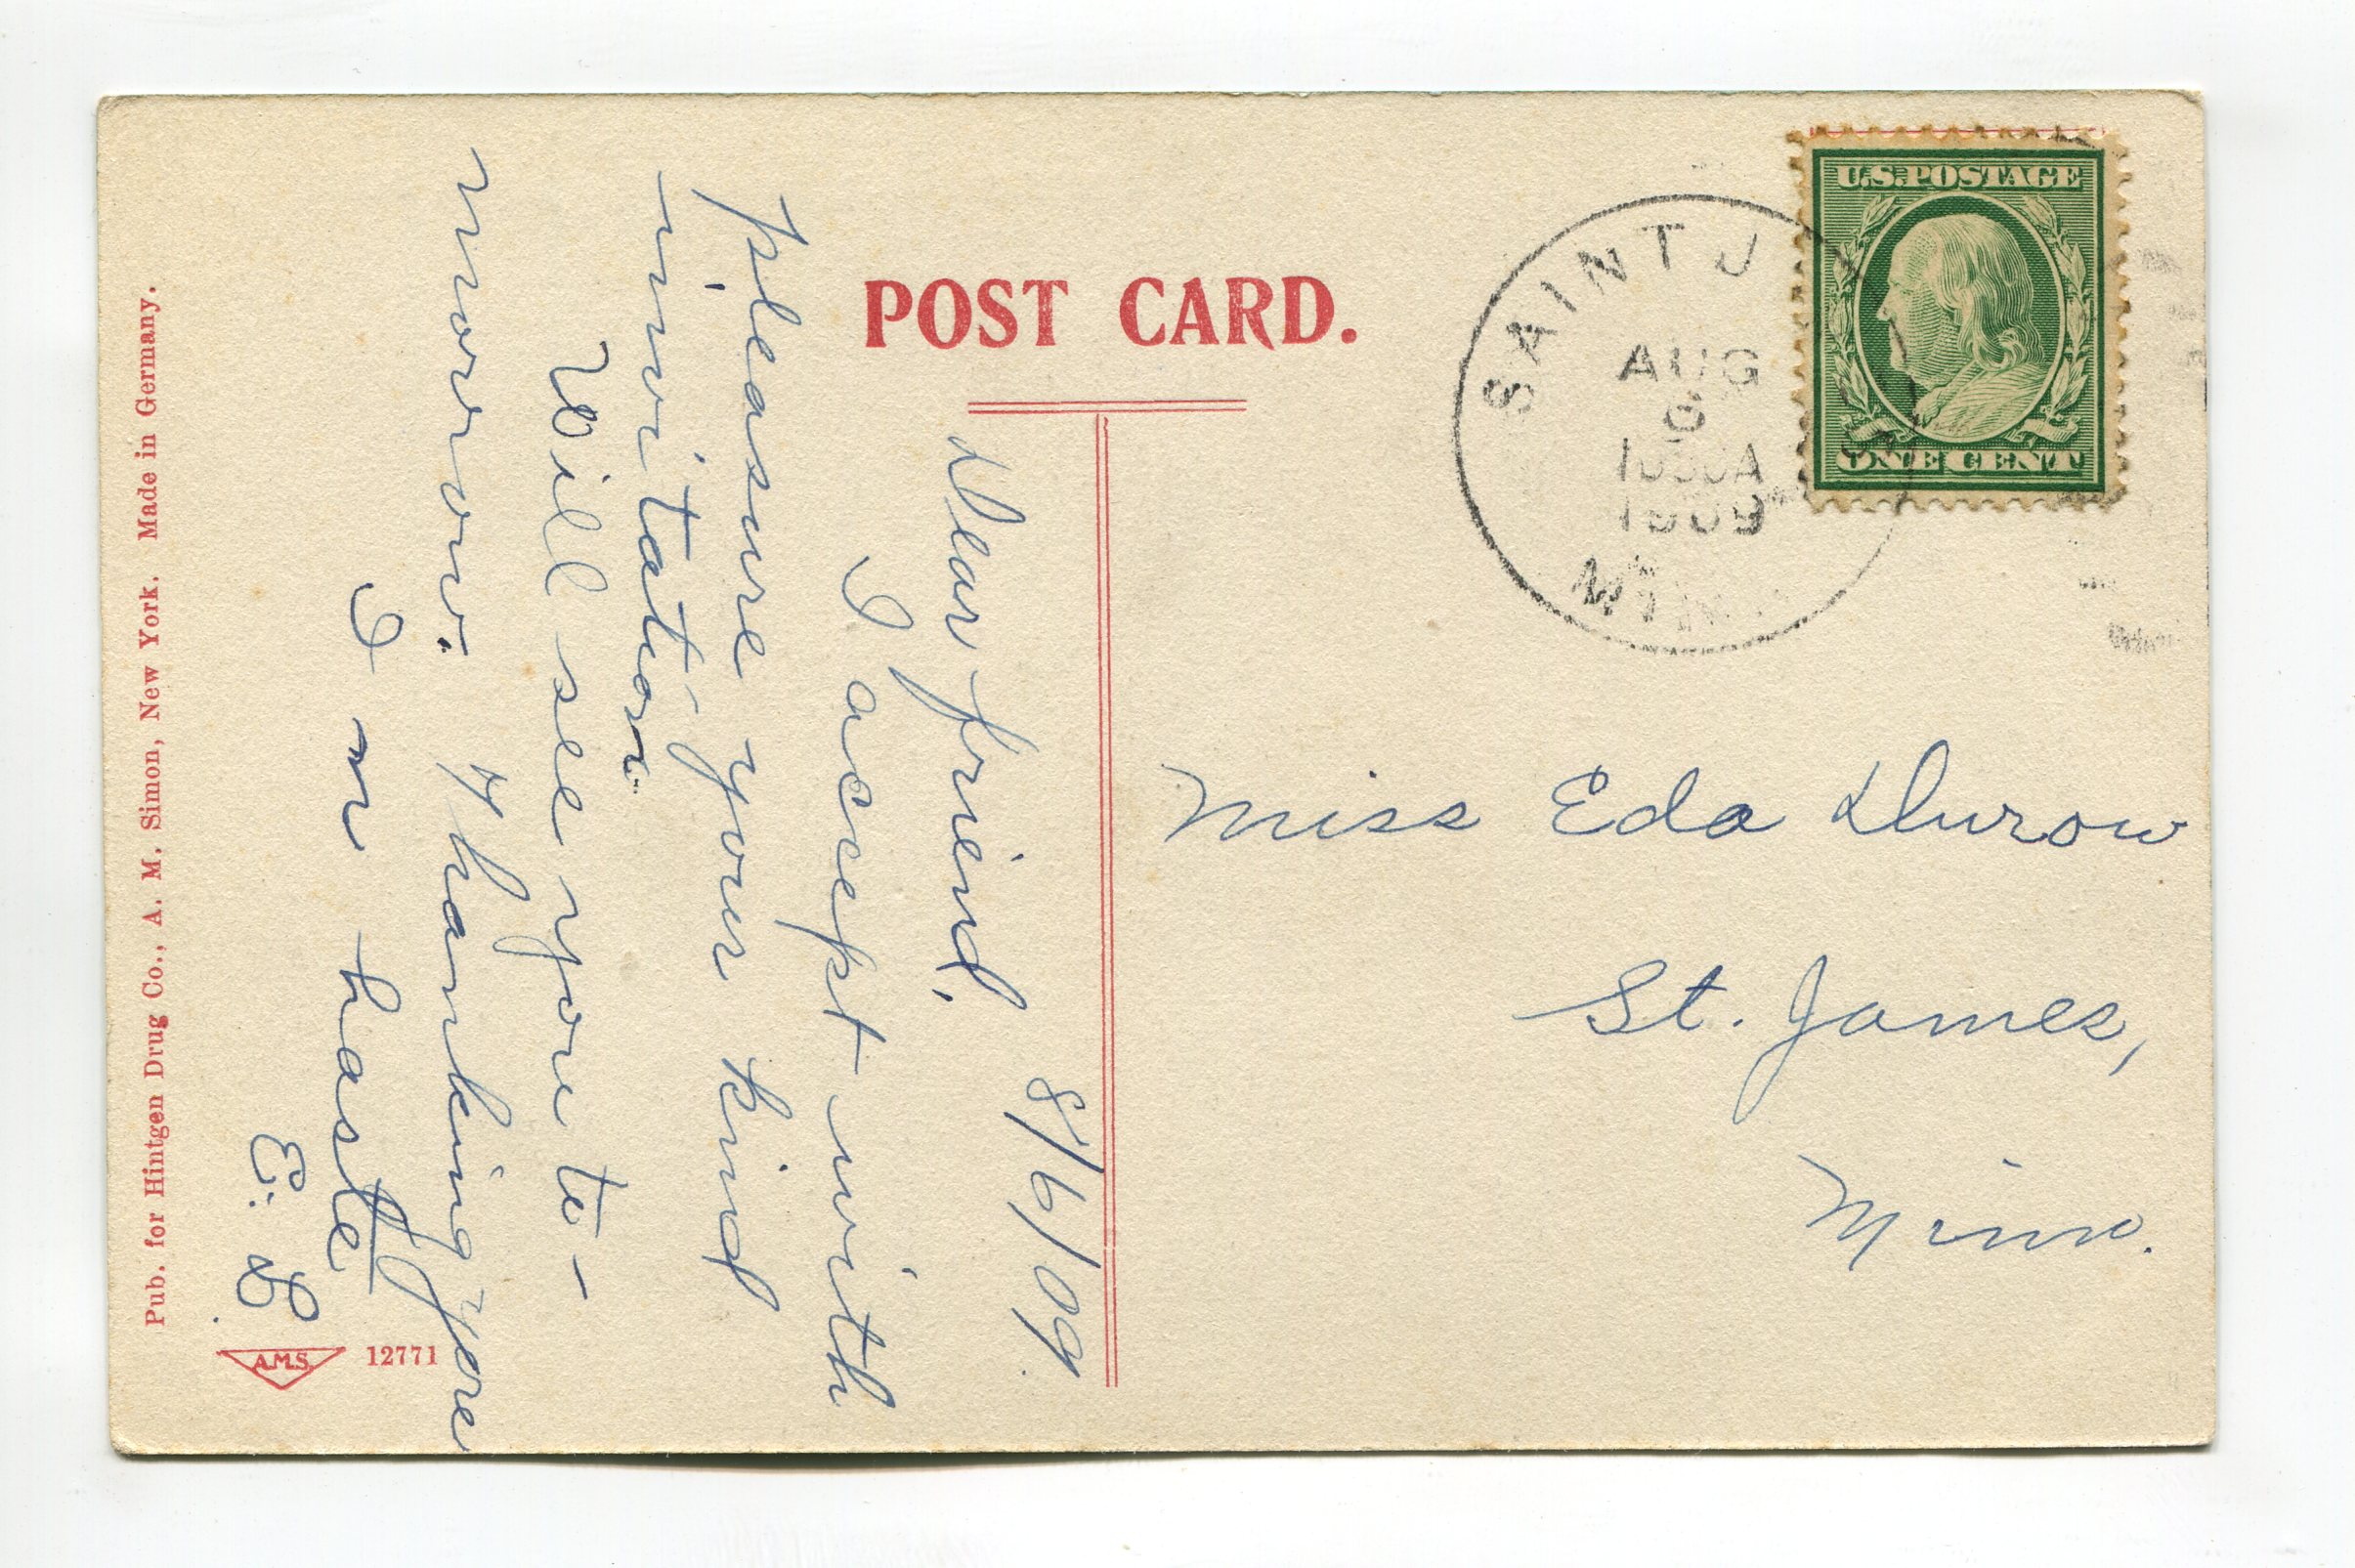 POST CARD.
U.S. POSTAGE
ONE CENT
SAINT J
AUG
6
1909
MINN
8/6/09.
Dear friend,
I accept with
pleasure your kind
invitation.
Will see you to-
morrow. Thanking you
I m haste
E. D.
Miss Eda Durow
St. James,
Minn.
Pub. for Hintgen Drug Co., A. M. Simon, New York. Made in Germany.
A.M.S.
12771